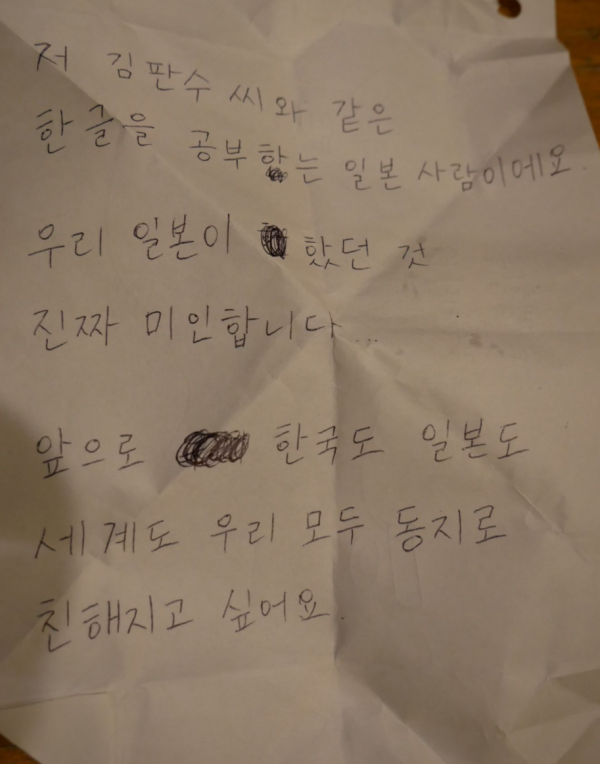 저 김판수 씨와 같은
한글을 공부하는 일본 사람이에요.
우리 일본이 했던 것
진짜 미인합니다...
앞으로 한국도 일본도
세계도 우리 모두 동지로
친해지고 싶어요